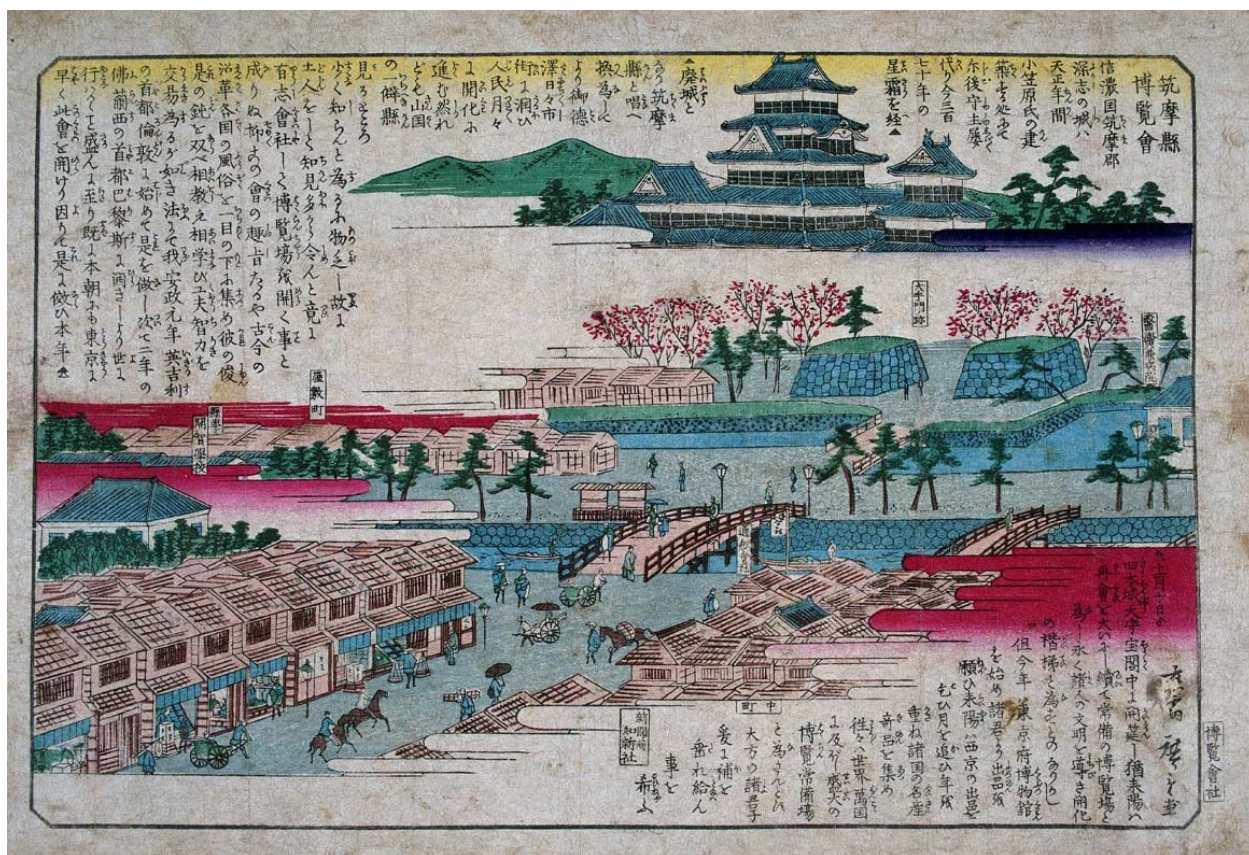 筑摩縣
博覽會
信濃国筑摩郡
深志の城ハ
天正年間
小笠原氏の建
築する処にて
尓後守主屡
代り今三百
七十年の
星霜を経▲
▲廃城と
なり筑摩
縣と唱へ
換為して
より御德
澤日々市
街に潤ひ
人民月々
に開化に
進む然れ
ども山国
の一僻縣
見るところ
少く知らんと為るに物乏し故に
土人をして知見多からしめんと竟に
百志會社して博覧場を開く事と
成りぬ抑この會の趣旨たるや古今の
沿革各国の風俗を一目の下に集め彼の俊
是の鋭と双べ相教え相学び工夫智力を
交易為るが如き法にて我安政元年英吉利
の首都倫敦に始めて是を做し次て二年の
佛蘭西の首都巴黎斯に開きしより世に
行ハれて盛んに至り既に本朝にも東京に
早く此會を開けり因りて是に倣ひ本年▲
大手門跡
屋敷町
縣學
開智學校
中町
十一月十日より
旧本城天守宝閣中に開莚し猶来陽ハ
再會を大いにし續て常備の博覧場と
為し永く諸人の文明を導き開化
の楷梯と為さんとのありし
但今年ハ東京府博物館
を始め諸君より出品を
願ひ来陽ハ西京の出品を
乞ひ月を追ひ年を
重ね諸国の名産
奇品を集め
往々ハ世界萬国
に及ぼし盛大の
博覧常備場
と為さんとす
大方の諸君子
爰に補を
垂れ給ん
事を
希ふ
知新社
博覧会社